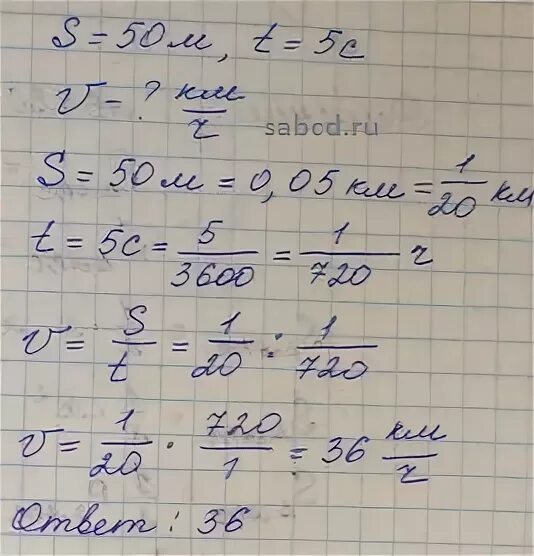 S = 50 м, t = 5с
v – ? км/ч
sabod.ru
S = 50 м = 0,05 км = 1/20 км
t = 5с = 5/3600 = 1/720 ч
v = S/t = 1/20 : 1/720
v = 1/20 · 720/1 = 36 км/ч
Ответ : 36